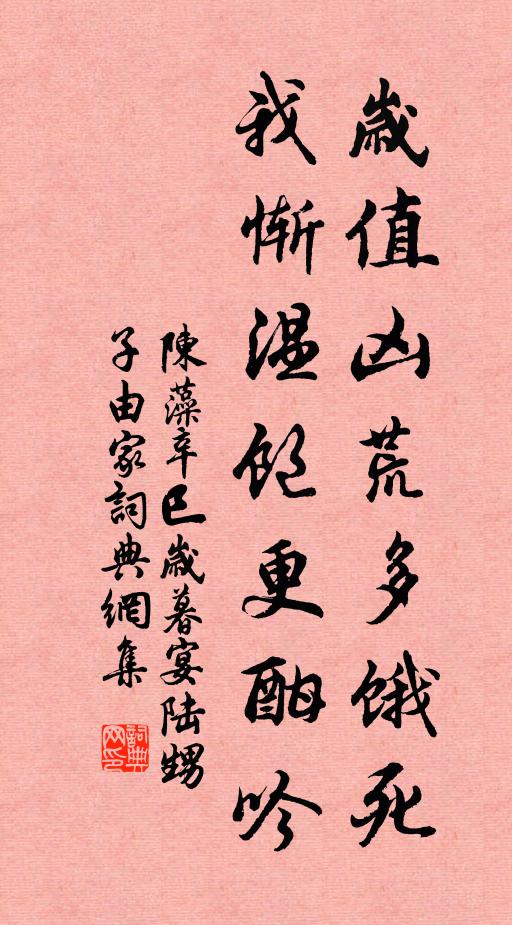 歲值凶荒多饿死
我惭温飽更酣吟
陳藻辛巳歲暮宴陆甥
子由家詞典網集
詞典
网印